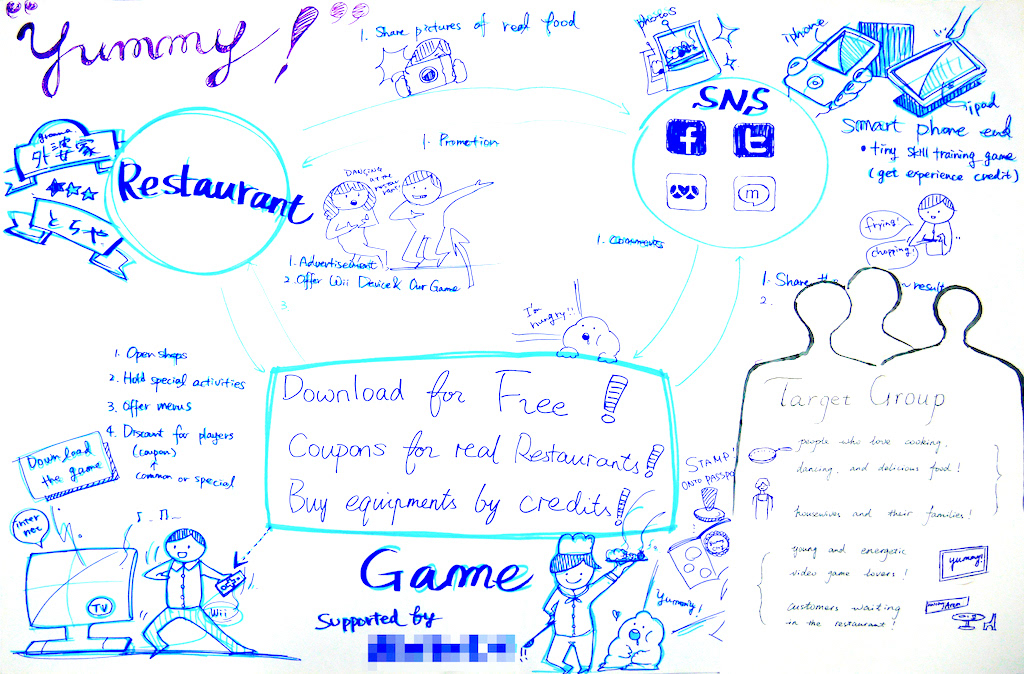 "Yummy!"
1. Share pictures of real food
photos
iphone
ipad
SNS
f
t
m
Smart phone end
• tiny skill training game
(get experience credit)
frying!
chopping!
gramma
外婆家
とらや
Restaurant
1. Promotion
DANCING
AT THE
RESTAURANT!
1. Advertisement
2. Offer Wii Device & Our Game
3.
1. Comments
1. Share the ~ result
2.
I'm
hungry!!
1. Open shops
2. Hold special activities
3. Offer menus
4. Discount for players
(coupon)
common or special
Download for Free!
Coupons for real Restaurants!
Buy equipments by credits!
Target Group
people who love cooking,
dancing, and delicious food!
housewives and their families!
young and energetic
video game lovers!
yummy!
customers waiting
in the restaurant!
STAMP!
ONTO PASSPO
Download
the game
internet
TV
Wii
Game
Supported by
Yummy!